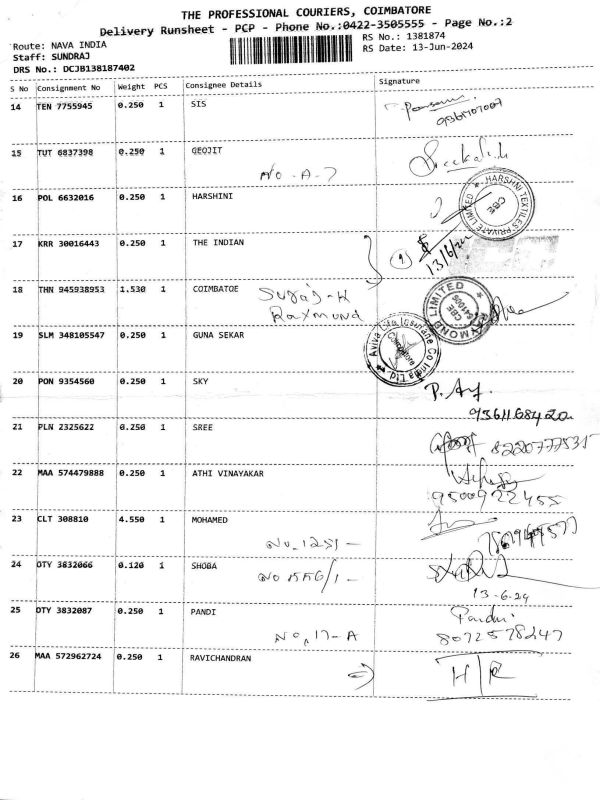 THE PROFESSIONAL COURIERS, COIMBATORE
Delivery Runsheet - PCP - Phone No.:0422-3505555 - Page No.:2
Route: NAVA INDIA
RS No.: 1381874
Staff: SUNDRAJ
RS Date: 13-Jun-2024
DRS No.: DCJB138187402
S No Consignment No Weight PCS Consignee Details Signature
14 TEN 7755945 0.250 1 SIS
15 TUT 6837398 0.250 1 GEOJIT
No - A-7
16 POL 6632016 0.250 1 HARSHINI
HARSHNI TEXTILES PRIVATE LIMITED
CBE
17 KRR 30016443 0.250 1 THE INDIAN
13/6/24
18 THN 945938953 1.530 1 COIMBATOE
Suraj-K
Raxmond
LIMITED
CBE
641006
19 SLM 348105547 0.250 1 GUNA SEKAR
Aviva Life Insurance Co India Ltd.
20 PON 9354560 0.250 1 SKY
9361168420
21 PLN 2325622 0.250 1 SREE
8220777535
22 MAA 574479888 0.250 1 ATHI VINAYAKAR
9500922455
23 CLT 308810 4.550 1 MOHAMED
No. 1251 -
24 OTY 3832066 0.120 1 SHOBA
No 1556/1 -
13-6-24
25 OTY 3832087 0.250 1 PANDI
Pandi
No, 17-A
8072578247
26 MAA 572962724 0.250 1 RAVICHANDRAN
H/R